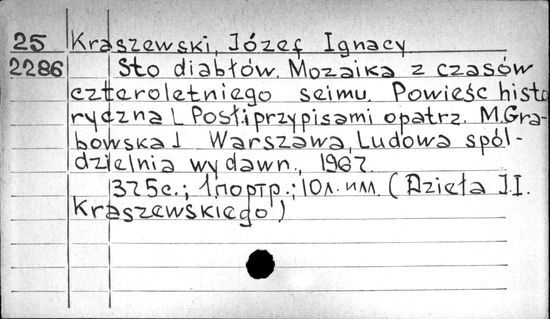 25 Kraszewski, Józef Ignacy
2286 Sto diabłów. Mozaika z czasów
czteroletniego seimu. Powieśc histo
ryczna L Posł.i przypisami opatrz. M. Gra-
bowska ⅃ Warszawa, Ludowa spół-
dzielnia wydawn., 1967.
375с.; 1 портр.; 10л. илл. (Dzieła J.I.
Kraszewskiego)